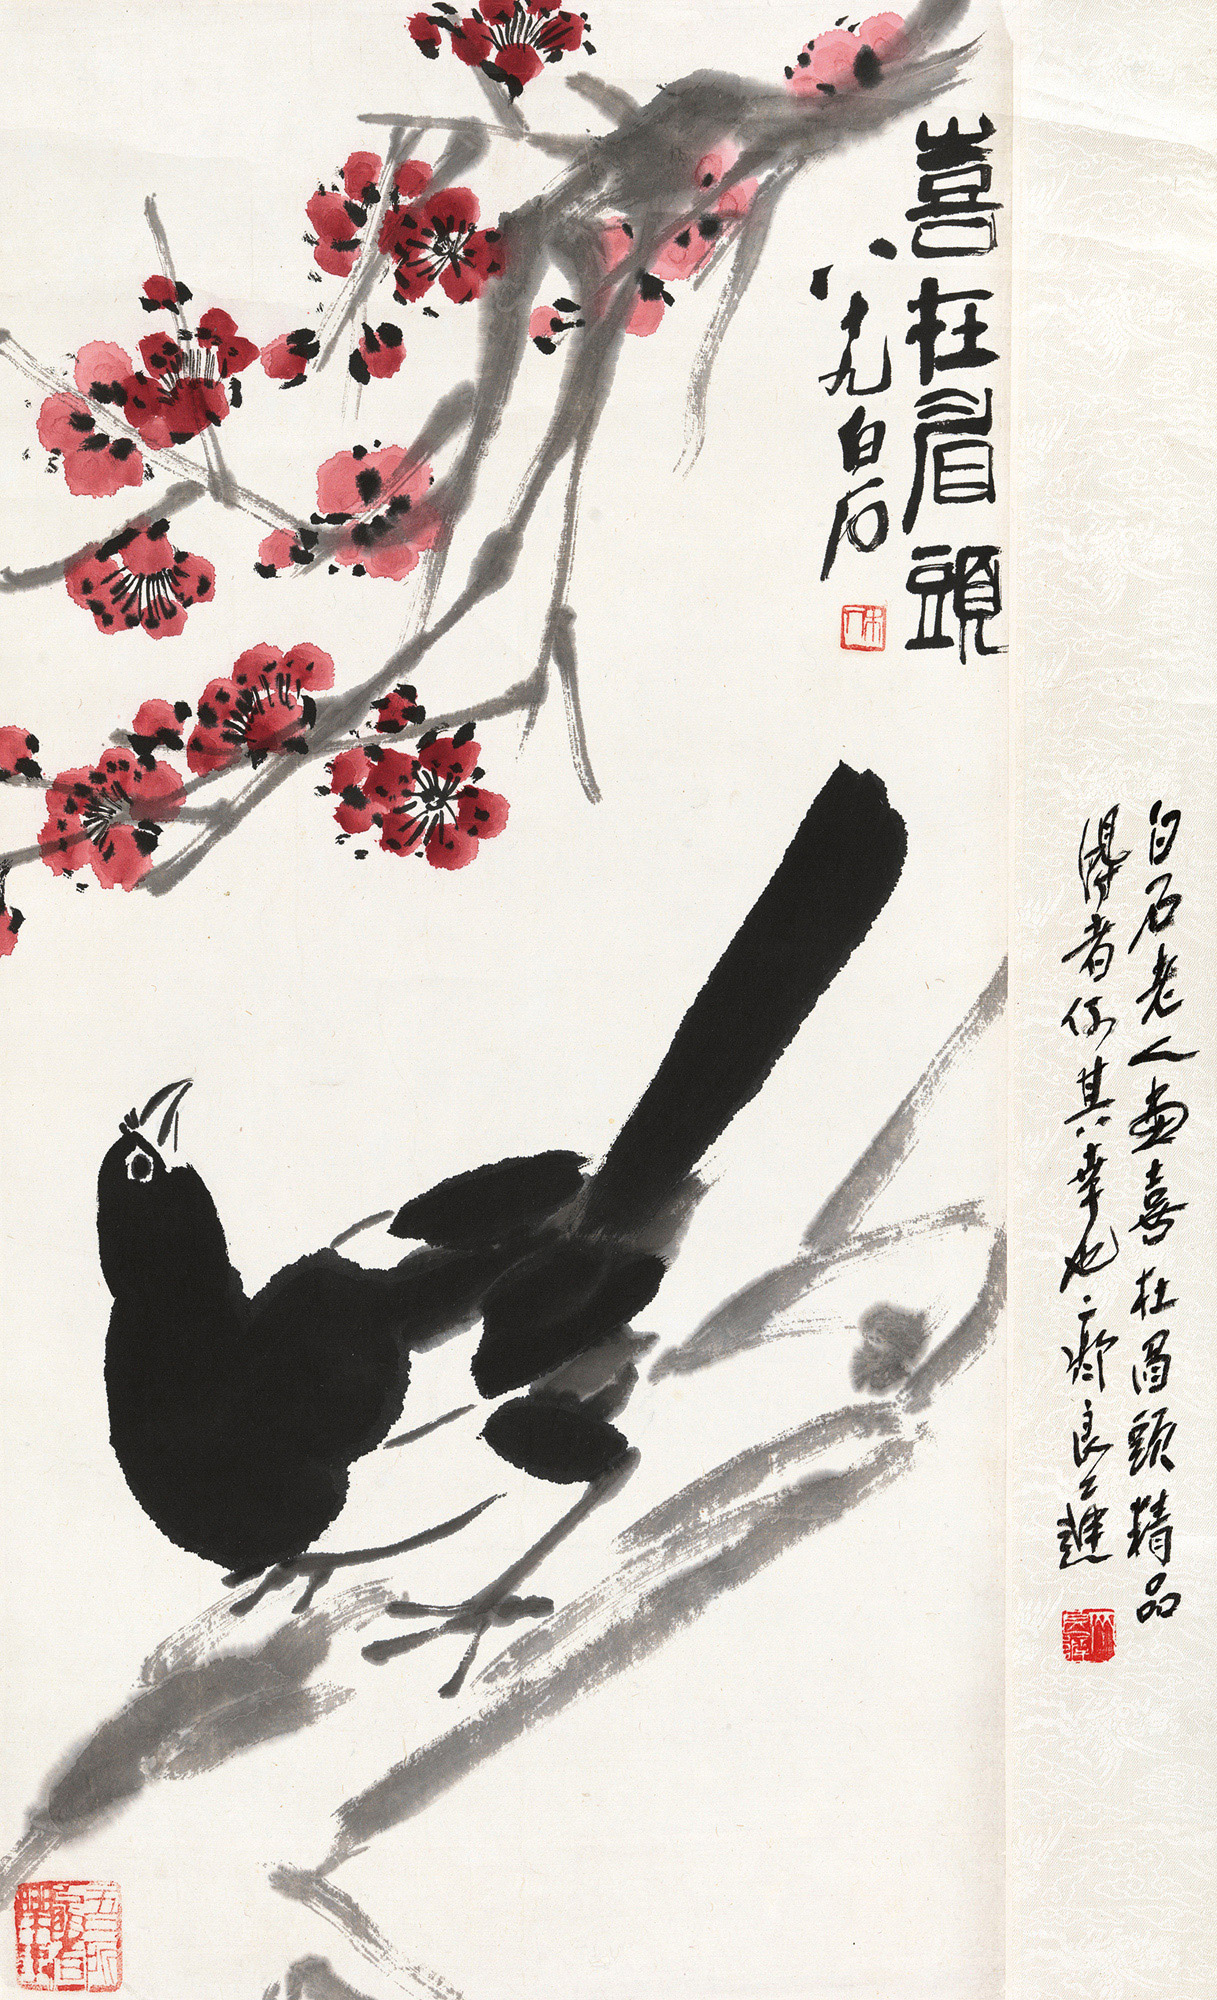 喜在眉頭
八十九白石
木人
白石老人畫喜在眉頭精品
得者何其幸也 良遲